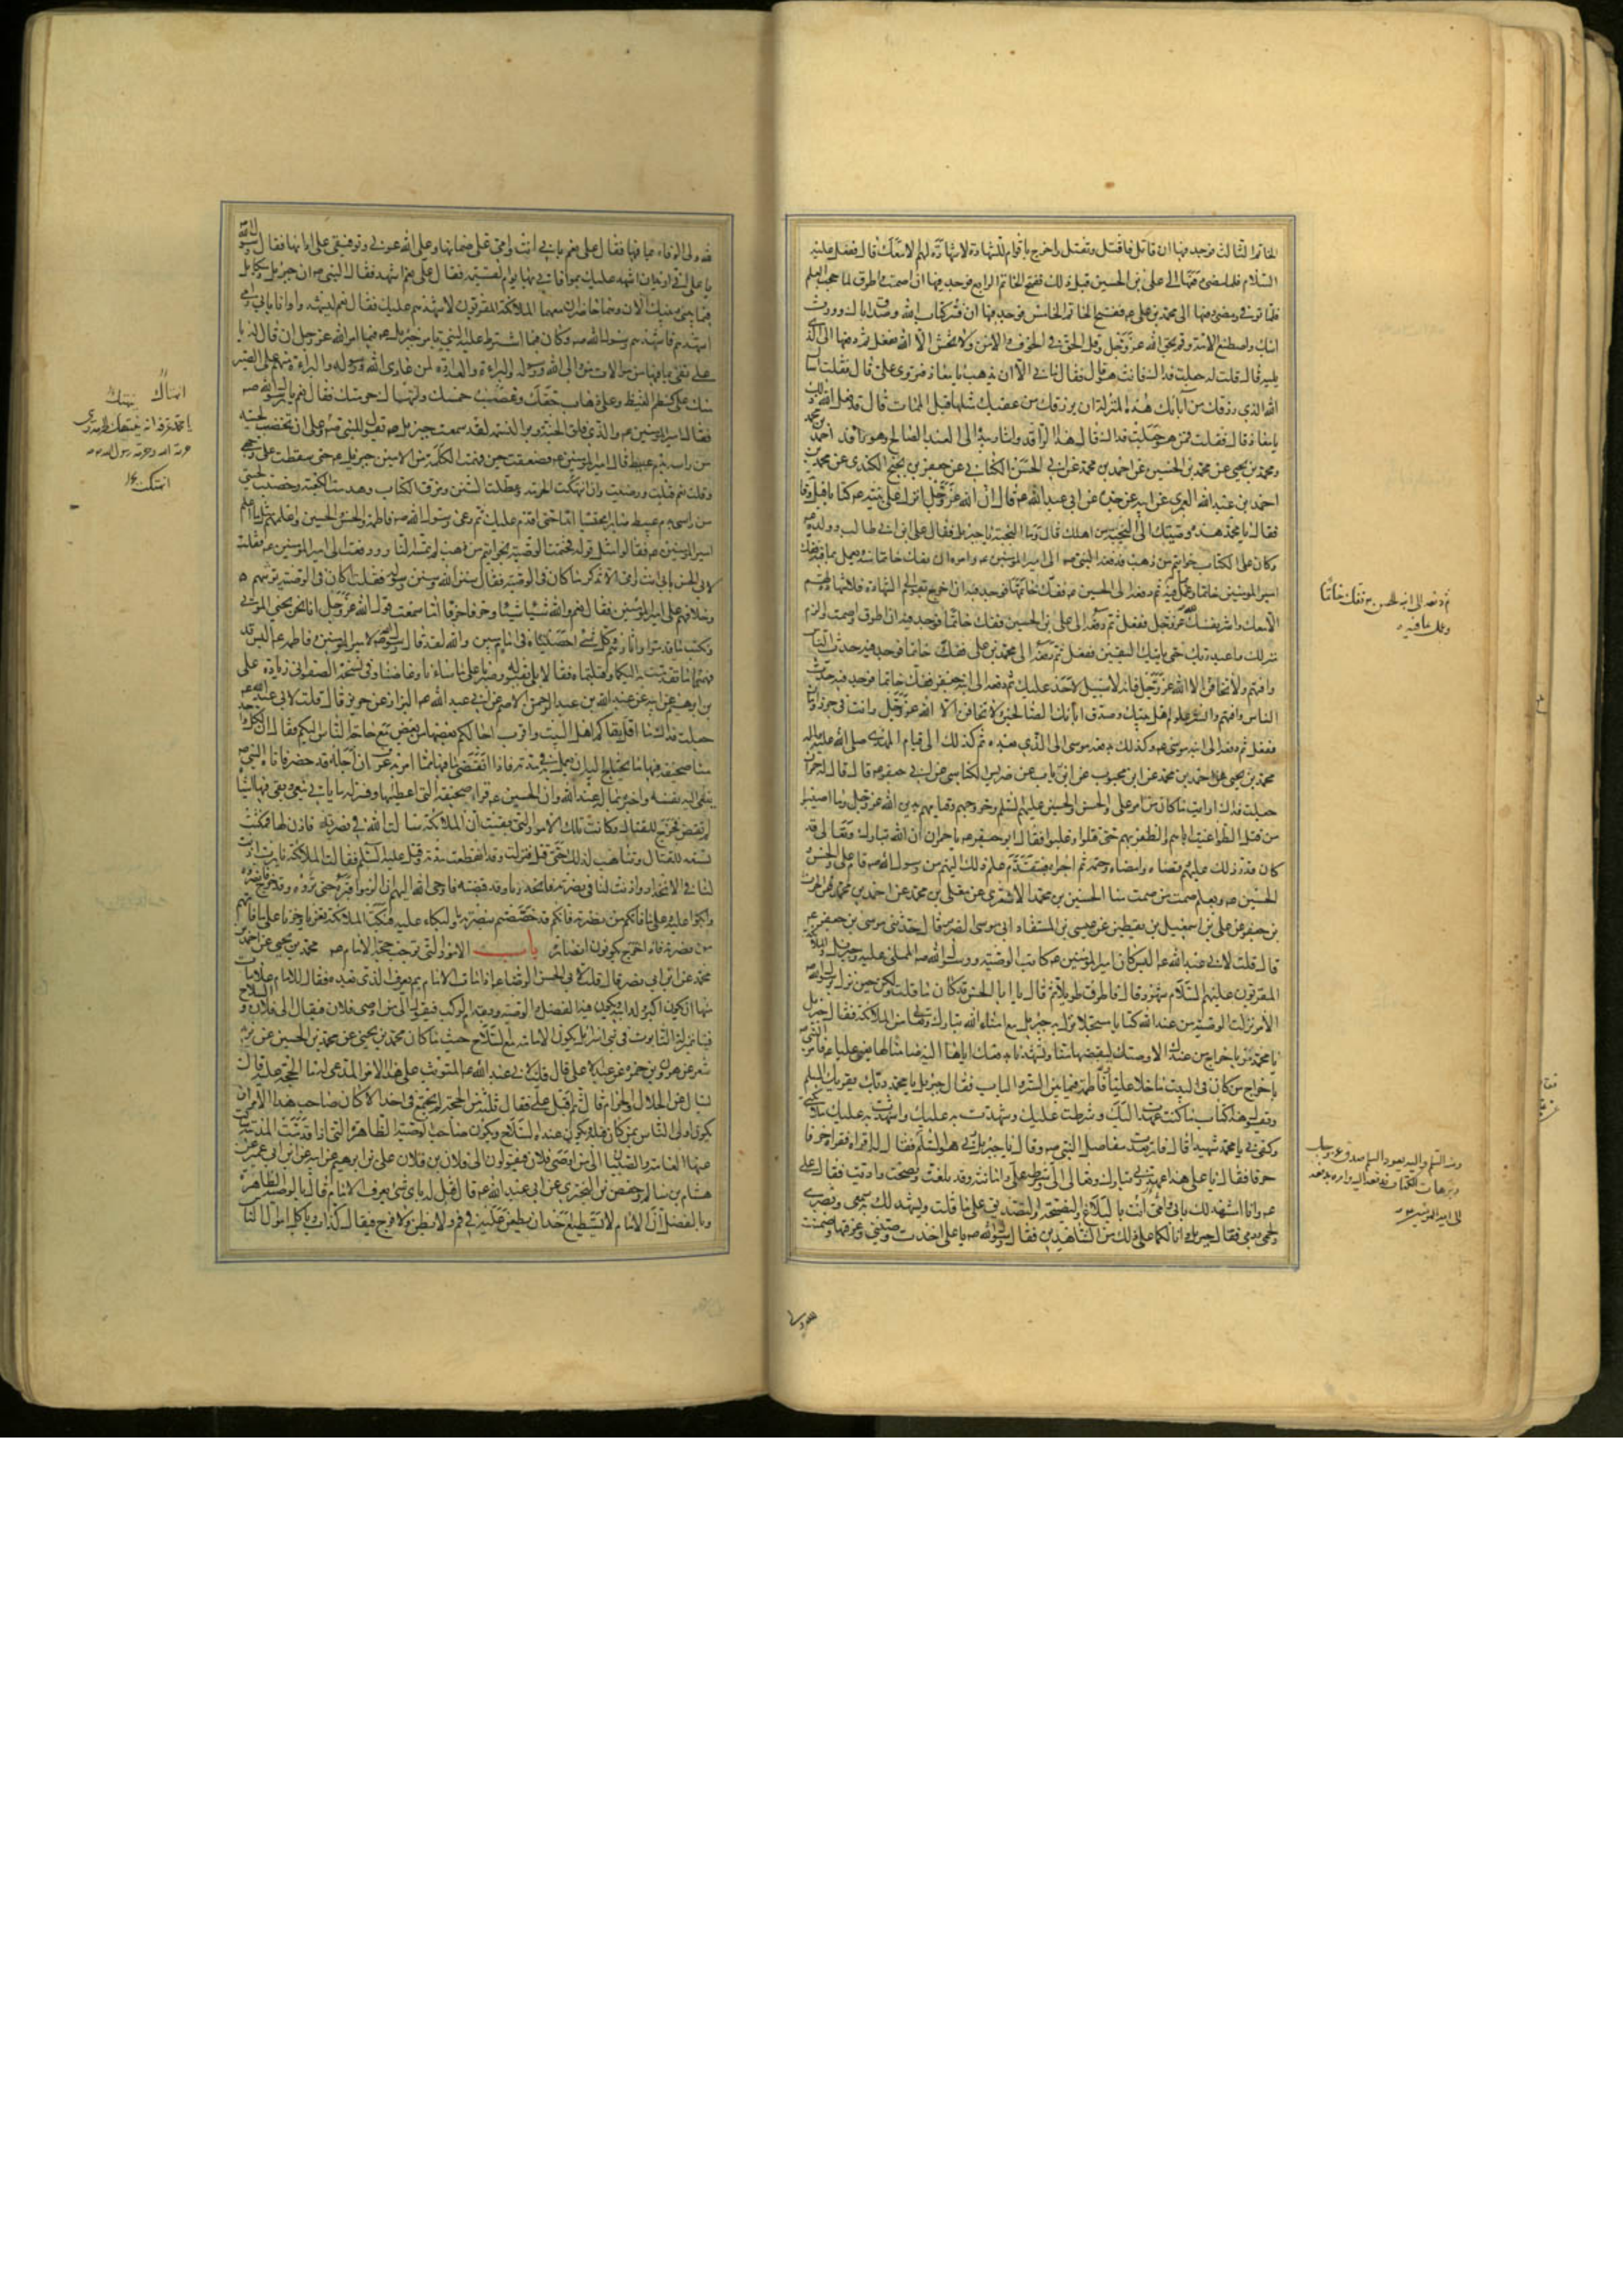 الخاتم الثالث فوجد فيها ان قاتل فاقتل وتقتل واخرج باقوام للشهادة لا شهادة لهم الا معك قال ففعل عليه
السلام فلما مضى دفعها الى علي بن الحسين قبل ذلك ففتح الخاتم الرابع فوجد فيها ان اصمت واطرق لما حجب العلم
فلما توفي ومضى دفعها الى محمد بن علي ع ففتح الخاتم الخامس فوجد فيها ان فسر كتاب الله وصدق اباك وورث
ابنك واصطنع الامة وقم بحق الله عز وجل وقل الحق في الخوف والامن ولا تخش الا الله ففعل ثم دفعها الى الذي
يليه قال قلت له جعلت فداك فانت هو قال فقال ما بي الا ان تذهب يا معاذ فتروي علي قال فقلت اسال
الله الذي رزقك من ابائك هذه المنزلة ان يرزقك من عقبك مثلها قبل الممات قال قد فعل الله ذلك
يا معاذ قال فقلت فمن هو جعلت فداك قال هذا الراقد واشار بيده الى العبد الصالح وهو راقد احمد بن محمد
ومحمد بن يحيى عن محمد بن الحسين عن احمد بن محمد عن ابي الحسن الكناني عن جعفر بن نجيح الكندي عن محمد بن
احمد بن عبيد الله العمري عن ابيه عن جده عن ابي عبد الله ع قال ان الله عز وجل انزل على نبيه ص كتابا قبل وفاته
فقال يا محمد هذه وصيتك الى النجبة من اهلك قال وما النجبة يا جبرئيل فقال علي بن ابي طالب وولده ع
وكان على الكتاب خواتيم من ذهب فدفعه النبي ص الى امير المؤمنين ع وامره ان يفك خاتما منه ويعمل بما فيه ففك
امير المؤمنين خاتما وعمل بما فيه ثم دفعه الى الحسين ع ففك خاتما فوجد فيه ان اخرج بقوم الى الشهادة فلا شهادة لهم
الا معك واشر نفسك لله عز وجل ففعل ثم دفعه الى علي بن الحسين ففك خاتما فوجد فيه ان اطرق واصمت والزم
منزلك واعبد ربك حتى ياتيك اليقين ففعل ثم دفعه الى محمد بن علي ففك خاتما فوجد فيه حدث الناس
وافتهم ولا تخافن الا الله عز وجل فانه لا سبيل لاحد عليك ثم دفعه الى ابنه جعفر ففك خاتما فوجد فيه حدث
الناس وافتهم وانشر علوم اهل بيتك وصدق ابائك الصالحين ولا تخافن الا الله عز وجل وانت في حرز وامان
ففعل ثم دفعه الى ابنه موسى ع وكذلك يدفعه موسى الى الذي بعده ثم كذلك الى قيام المهدي صلى الله عليه واله
محمد بن يحيى عن احمد بن محمد عن ابن محبوب عن ابن رئاب عن ضريس الكناسي عن ابي جعفر ع قال قال له حمران
جعلت فداك ارايت ما كان من امر علي والحسن والحسين عليهم السلم وخروجهم وقيامهم بدين الله عز وجل وما اصيبوا
من قتل الطواغيت اياهم والظفر بهم حتى قتلوا وغلبوا فقال ابو جعفر ع يا حمران ان الله تبارك وتعالى قد
كان قدر ذلك عليهم وقضاه وامضاه وحتمه ثم اجراه فبتقدم علم ذلك اليهم من رسول الله ص قام علي والحسن
والحسين ص وبعلم صمت من صمت منا الحسين بن محمد الاشعري عن معلى بن محمد عن احمد بن محمد عن الحارث
بن جعفر عن علي بن اسمعيل بن يقطين عن عيسى بن المستفاد ابي موسى الضرير قال حدثني موسى بن جعفر ع
قال قلت لابي عبد الله ع اليس كان امير المؤمنين ع كاتب الوصية ورسول الله ص المملي عليه وجبرئيل والملائكة
المقربون عليهم السلام شهود قال فاطرق طويلا ثم قال يا ابا الحسن قد كان ما قلت ولكن حين نزل برسول الله ص
الامر نزلت الوصية من عند الله كتابا مسجلا نزل به جبرئيل مع امناء الله تبارك وتعالى من الملائكة فقال جبرئيل
يا محمد مر باخراج من عندك الا وصيك ليقبضها منا وتشهدنا بدفعك اياها اليه ضامنا لها يعني عليا ع فامر النبي ص
باخراج من كان في البيت ما خلا عليا وفاطمة فيما بين الستر والباب فقال جبرئيل يا محمد ربك يقرئك السلم
ويقول هذا كتاب ما كنت عهدت اليك وشرطت عليك وشهدت به عليك واشهدت به عليك ملائكتي
وكفى بي يا محمد شهيدا قال فارتعدت مفاصل النبي ص وقال يا جبرئيل ربي هو السلم فقال له اقراه فقراه حرفا
حرفا فقال يا علي هذا عهد ربي تبارك وتعالى الي وشرطه علي وامانته وقد بلغت ونصحت واديت فقال علي
ع وانا اشهد لك بابي وامي انت بالبلاغ والنصيحة والتصديق على ما قلت ويشهد لك به سمعي وبصري
ولحمي ودمي فقال جبرئيل انا لكما على ذلك من الشاهدين فقال رسول الله ص يا علي اخذت وصيتي وعرفتها وضمنت
ثم دفعه الى ابنه الحسن ع ففك خاتما
وعمل بما فيه
ومنه السلم واليه يعود السلم صدق عز وجل
وبر هات الكتاب فدفعه اليه وامره بدفعه
الى امير المؤمنين ع
لله ولي الوفاء بما فيها فقال علي نعم بابي انت وامي علي ضمانها وعلى الله عوني وتوفيقي على ادائها فقال رسول الله
يا علي اني اريد ان اشهد عليك بموافاتي بها يوم القيمة فقال علي نعم اشهد فقال النبي ص ان جبرئيل وميكائيل
فيما بيني وبينك الان وهما حاضران معهما الملائكة المقربون لاشهدهم عليك فقال نعم ليشهدوا وانا بابي وامي
اشهدهم فاشهدهم رسول الله ص وكان فيما اشترط عليه النبي بامر جبرئيل ع فيما امر الله عز وجل ان قال له يا
علي تفي بما فيها من موالاة من والى الله ورسوله والبراءة والعداوة لمن عادى الله ورسوله والبراءة منهم على الصبر
منك على كظم الغيظ وعلى ذهاب حقك وغصب خمسك وانتهاك حرمتك فقال نعم يا رسول الله ص
فقال امير المؤمنين ع والذي فلق الحبة وبرا النسمة لقد سمعت جبرئيل ع يقول للنبي ص وعلى ان تخضب لحيته
من راسه بدم عبيط قال امير المؤمنين ع فصعقت حين فهمت الكلمة من الامين جبرئيل ع حتى سقطت على وجهي
وقلت نعم قبلت ورضيت وان انتهكت الحرمة وعطلت السنن ومزق الكتاب وهدمت الكعبة وخضبت لحيتي
من راسي بدم عبيط صابرا محتسبا ابدا حتى اقدم عليك ثم دعى رسول الله ص فاطمة والحسن والحسين واعلمهم مثل ما اعلم
امير المؤمنين ع فقالوا مثل قوله فختمت الوصية بخواتيم من ذهب لم تمسه النار ودفعت الى امير المؤمنين ع فقلت
لابي الحسن بابي انت وامي الا تذكر ما كان في الوصية فقال سنن الله وسنن رسوله فقلت اكان في الوصية توثبهم
وخلافهم على امير المؤمنين فقال نعم والله شيئا شيئا وحرفا حرفا اما سمعت قول الله عز وجل انا نحن نحيي الموتى
ونكتب ما قدموا واثارهم وكل شيء احصيناه في امام مبين والله لقد قال رسول الله ص لامير المؤمنين وفاطمة ع اليس قد
فهمتما ما تقدمت به اليكما وقبلتماه فقالا بلى بقبوله وصبرنا على ما ساءنا وغاضنا وفي نسخة الصفواني زيادة علي
بن ابرهيم عن ابيه عن عبد الله بن عبد الرحمن الاصم عن ابي عبد الله ع البزاز عن حريز قال قلت لابي عبد الله ع
جعلت فداك ما اقل بقاءكم اهل البيت واقرب اجالكم بعضها من بعض مع حاجة الناس اليكم فقال ان لكل واحد
منا صحيفة فيها ما يحتاج اليه ان يعمل به في مدته فاذا انقضى ما فيها مما امر به عرف ان اجله قد حضر فاتاه النبي ص
ينعى اليه نفسه واخبره بما له عند الله وان الحسين ع قرا صحيفته التي اعطيها وفسر له ما ياتي بنعي وبقي فيها اشياء
لم تقض فخرج للقتال وكانت تلك الامور التي بقيت ان الملائكة سالت الله في نصرته فاذن لها فمكثت
تستعد للقتال وتتاهب لذلك حتى قتل فنزلت وقد انقطعت مدته وقتل عليه السلم فقالت الملائكة يا رب اذنت
لنا في الانحدار واذنت لنا في نصرته فانحدرنا وقد قبضته فاوحى الله اليهم ان الزموا قبره حتى تروه وقد خرج فانصروه
وابكوا عليه وعلى ما فاتكم من نصرته فانكم قد خصصتم بنصرته والبكاء عليه فبكت الملائكة تعزيا وحزنا على ما فاتهم
من نصرته فاذا خرج يكونون انصاره باب الامور التي توجب حجة الامام ص محمد بن يحيى عن احمد بن
محمد عن ابن ابي نصر قال قلت لابي الحسن الرضا ع اذا مات الامام بم يعرف الذي بعده فقال للامام علامات
منها ان يكون اكبر ولد ابيه ويكون فيه الفضل والوصية ويقدم الركب فيقول الى من اوصى فلان فيقال الى فلان والسلاح
فينا بمنزلة التابوت في بني اسرائيل يكون الامامة مع السلاح حيث ما كان محمد بن يحيى عن محمد بن الحسين عن يزيد
شعر عن هرون بن حمزة عن عبد الاعلى قال قلت لابي عبد الله ع المتوثب على هذا الامر المدعي له ما الحجة عليه قال
يسال عن الحلال والحرام قال ثم اقبل علي فقال ثلثة من الحجة لم تجتمع في احد الا كان صاحب هذا الامر ان
يكون اولى الناس بمن كان قبله ويكون عنده السلاح ويكون صاحب الوصية الظاهرة التي اذا قدمت المدينة سالت
عنها العامة والصبيان الى من اوصى فلان فيقولون الى فلان بن فلان علي بن ابرهيم عن ابيه عن ابن ابي عمير عن
هشام بن سالم وحفص بن البختري عن ابي عبد الله ع قال قيل له باي شيء يعرف الامام قال بالوصية الظاهرة
وبالفضل ان الامام لا يستطيع احد ان يطعن عليه في فم ولا بطن ولا فرج فيقال كذاب وياكل اموال الناس